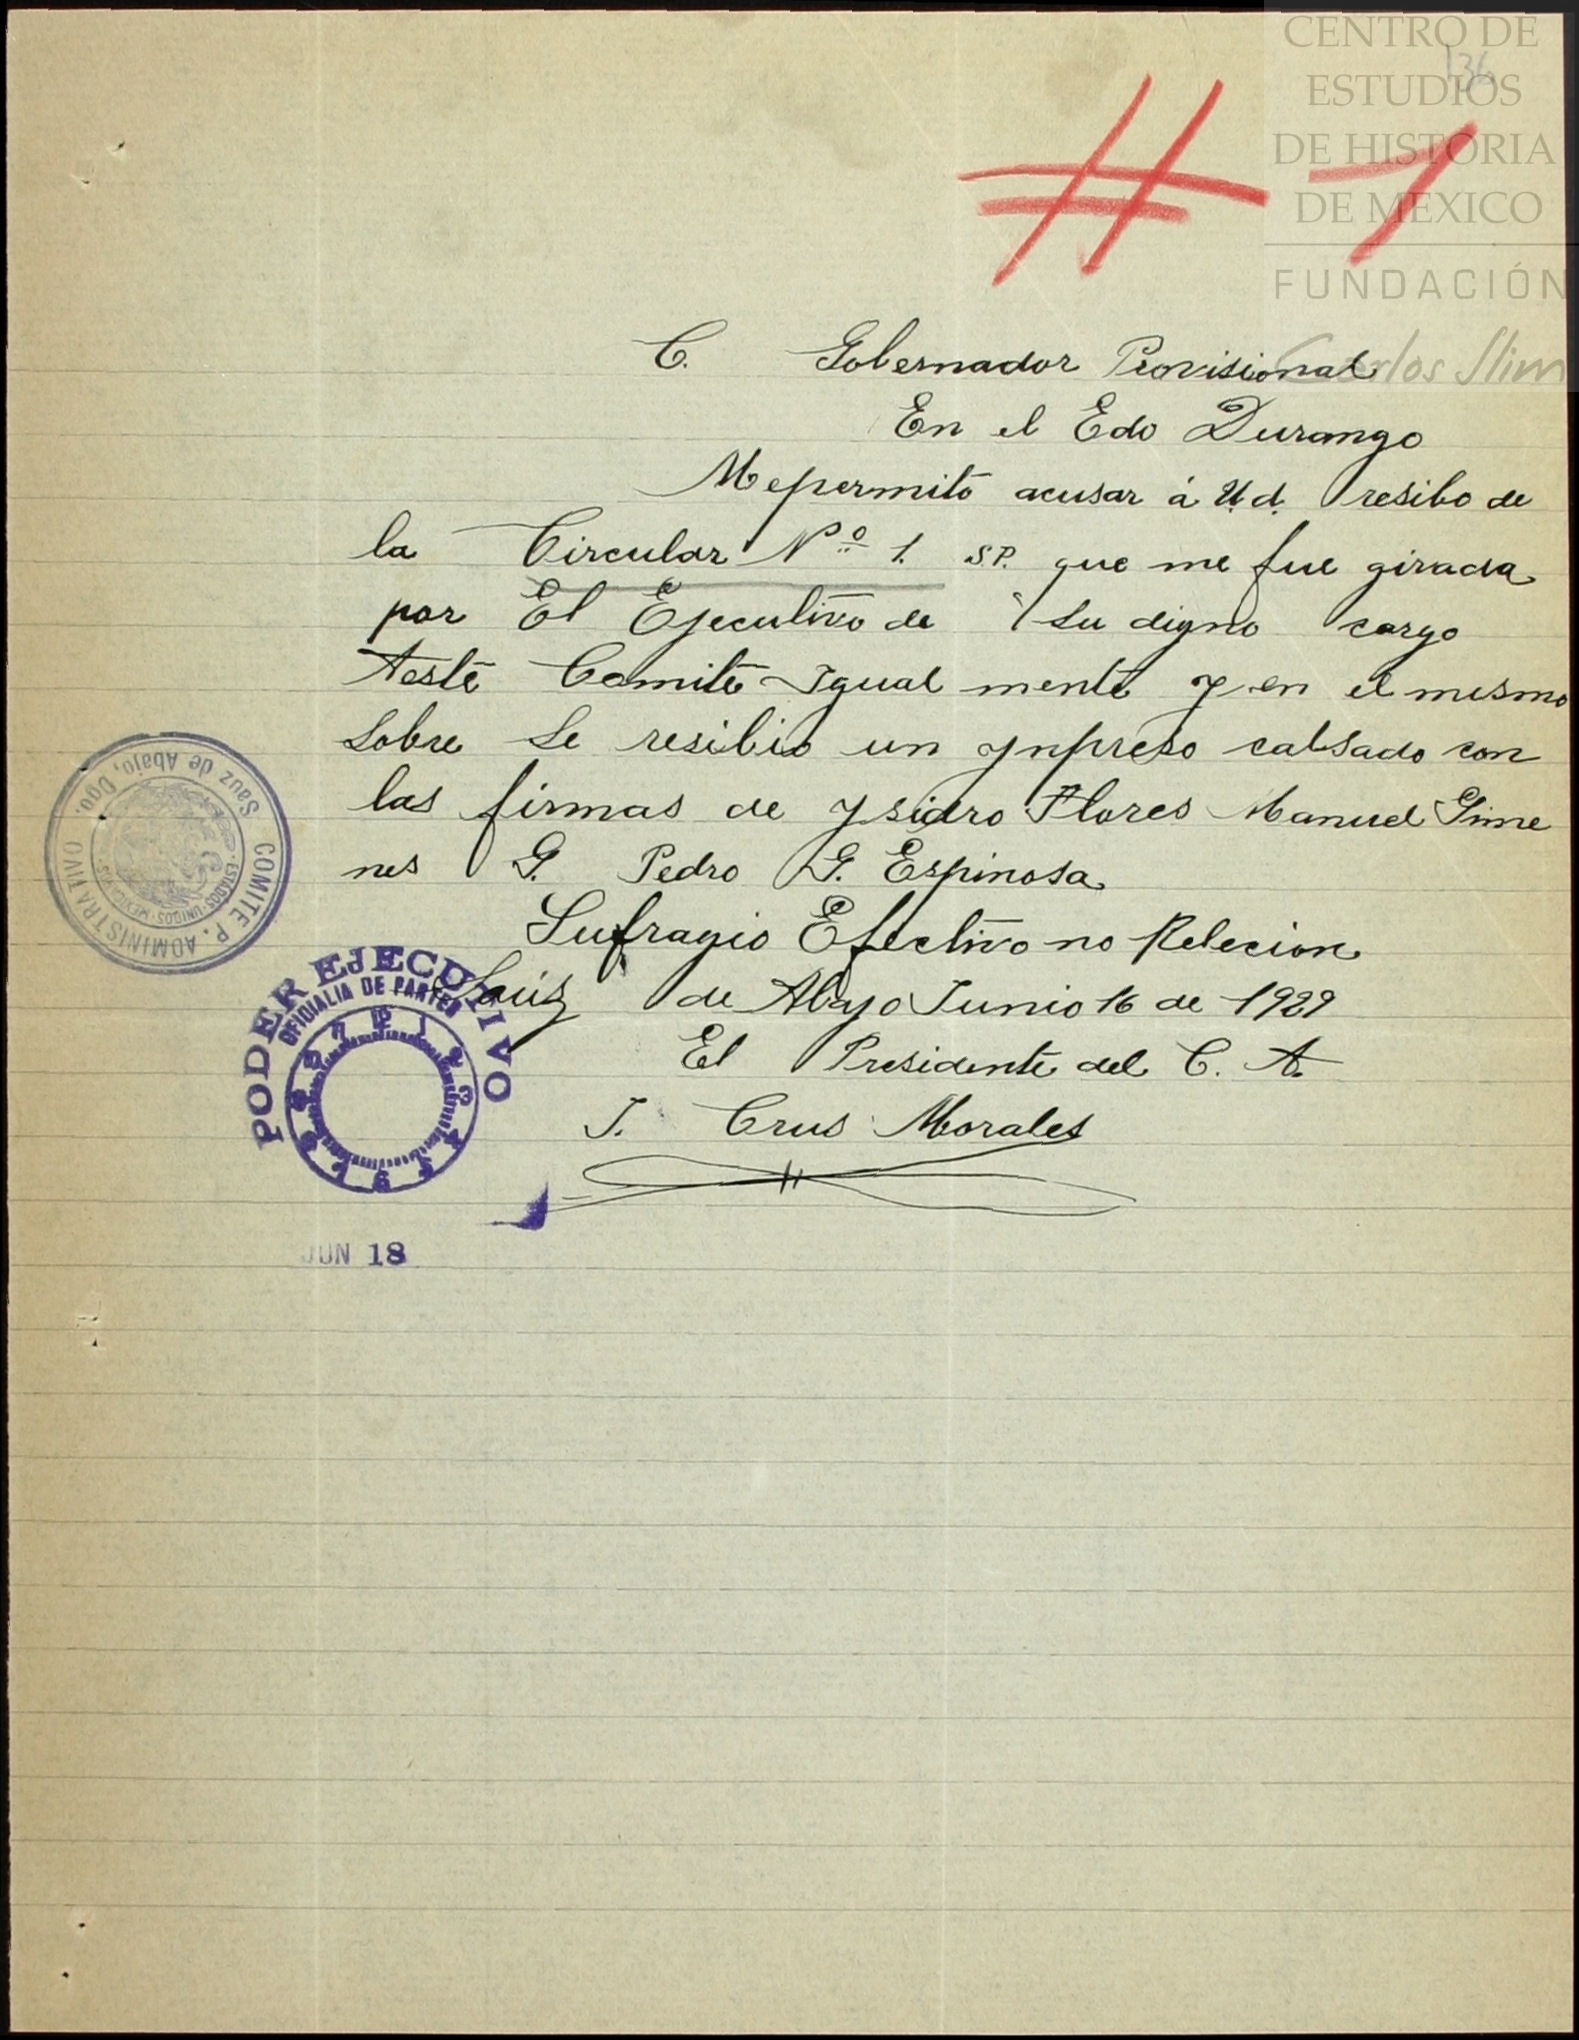 CENTRO DE
ESTUDIOS
DE HISTORIA
DE MEXICO
FUNDACIÓN
Carlos Slim
136
# 1
C. Gobernador Provisional
En el Edo Durango
Mepermito acusar á Ud. resibo de
la Circular Nº 1. SP. que me fue girada
por El Ejecutivo de Su digno cargo
Aeste Comite Igual mente y en el mismo
Sobre Se resibio un ynpreso calsado con
las firmas de Ysidro Flores Manuel Gime
nes G. Pedro G. Espinosa
Sufragio Efectivo no Relecion
Saúz de Abajo Junio 16 de 1929
El Presidente del C. A.
J. Crus Morales
COMITE P. ADMINISTRATIVO
Sauz de Abajo, Dgo.
ESTADOS UNIDOS MEXICANOS
PODER EJECUTIVO
OFICIALIA DE PARTES
JUN 18